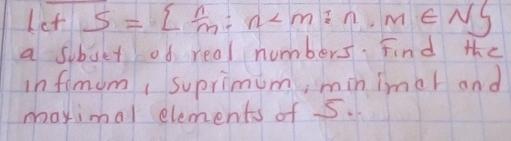 let S = { n/m : n < m ; n, m ∈ N }
a subset of real numbers. Find the
infimum, suprimum, minimal and
maximal elements of S..